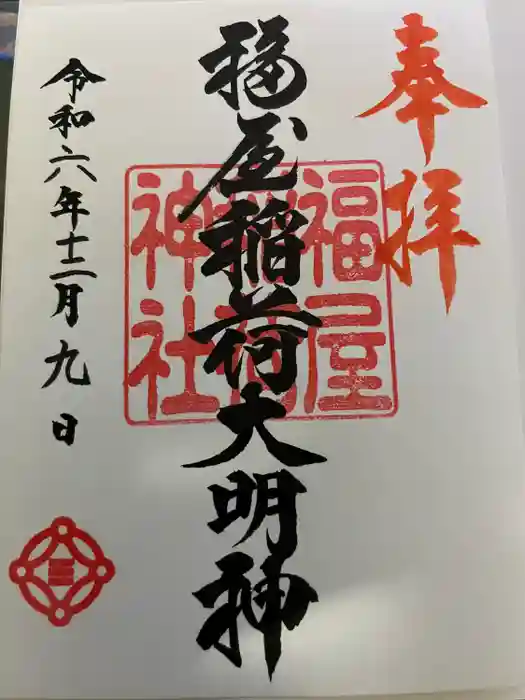 奉拝
福屋稲荷大明神
福屋
稲荷
神社
令和六年十二月九日